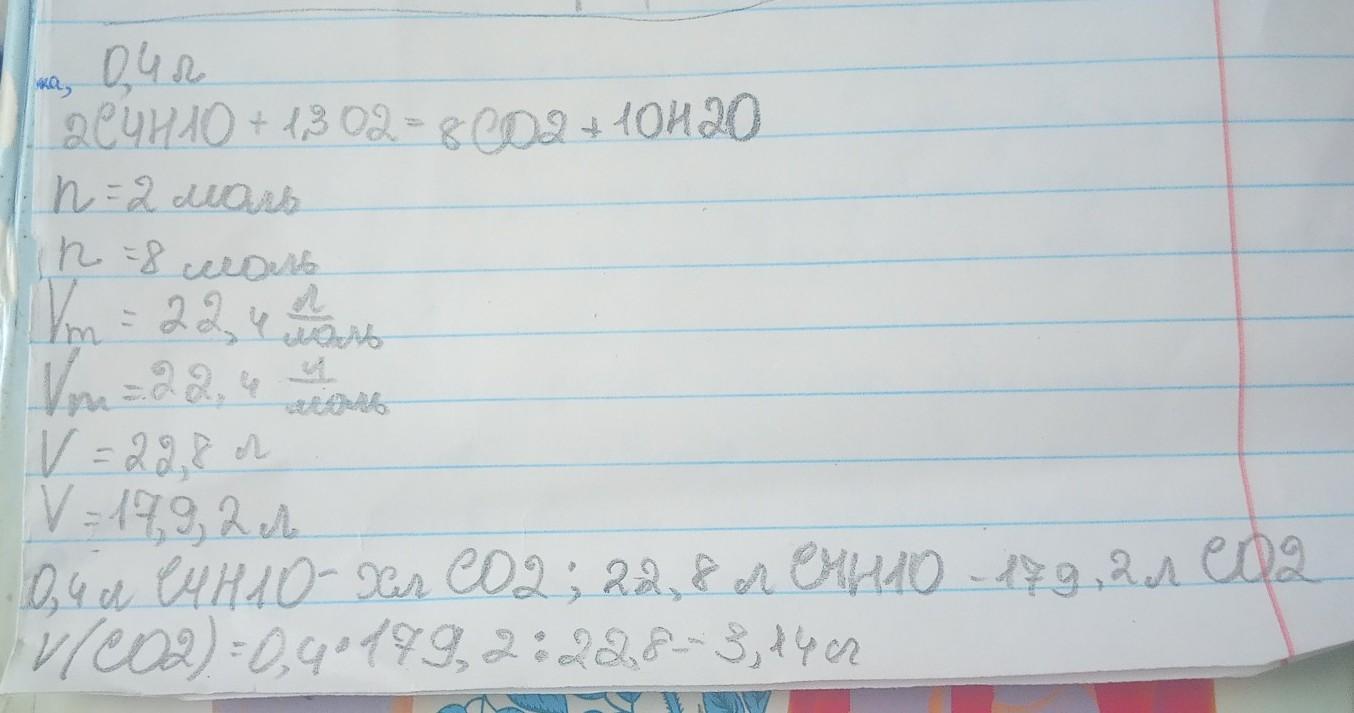 ка, 0,4 л
2C4H10 + 13O2 = 8CO2 + 10H2O
n = 2 моль
n = 8 моль
Vm = 22,4 л/моль
Vm = 22,4 л/моль
V = 22,8 л
V = 17,9,2 л
0,4 л C4H10 - Xл CO2 ; 22,8 л C4H10 - 179,2 л CO2
V(CO2) = 0,4 · 179,2 : 22,8 = 3,14 л